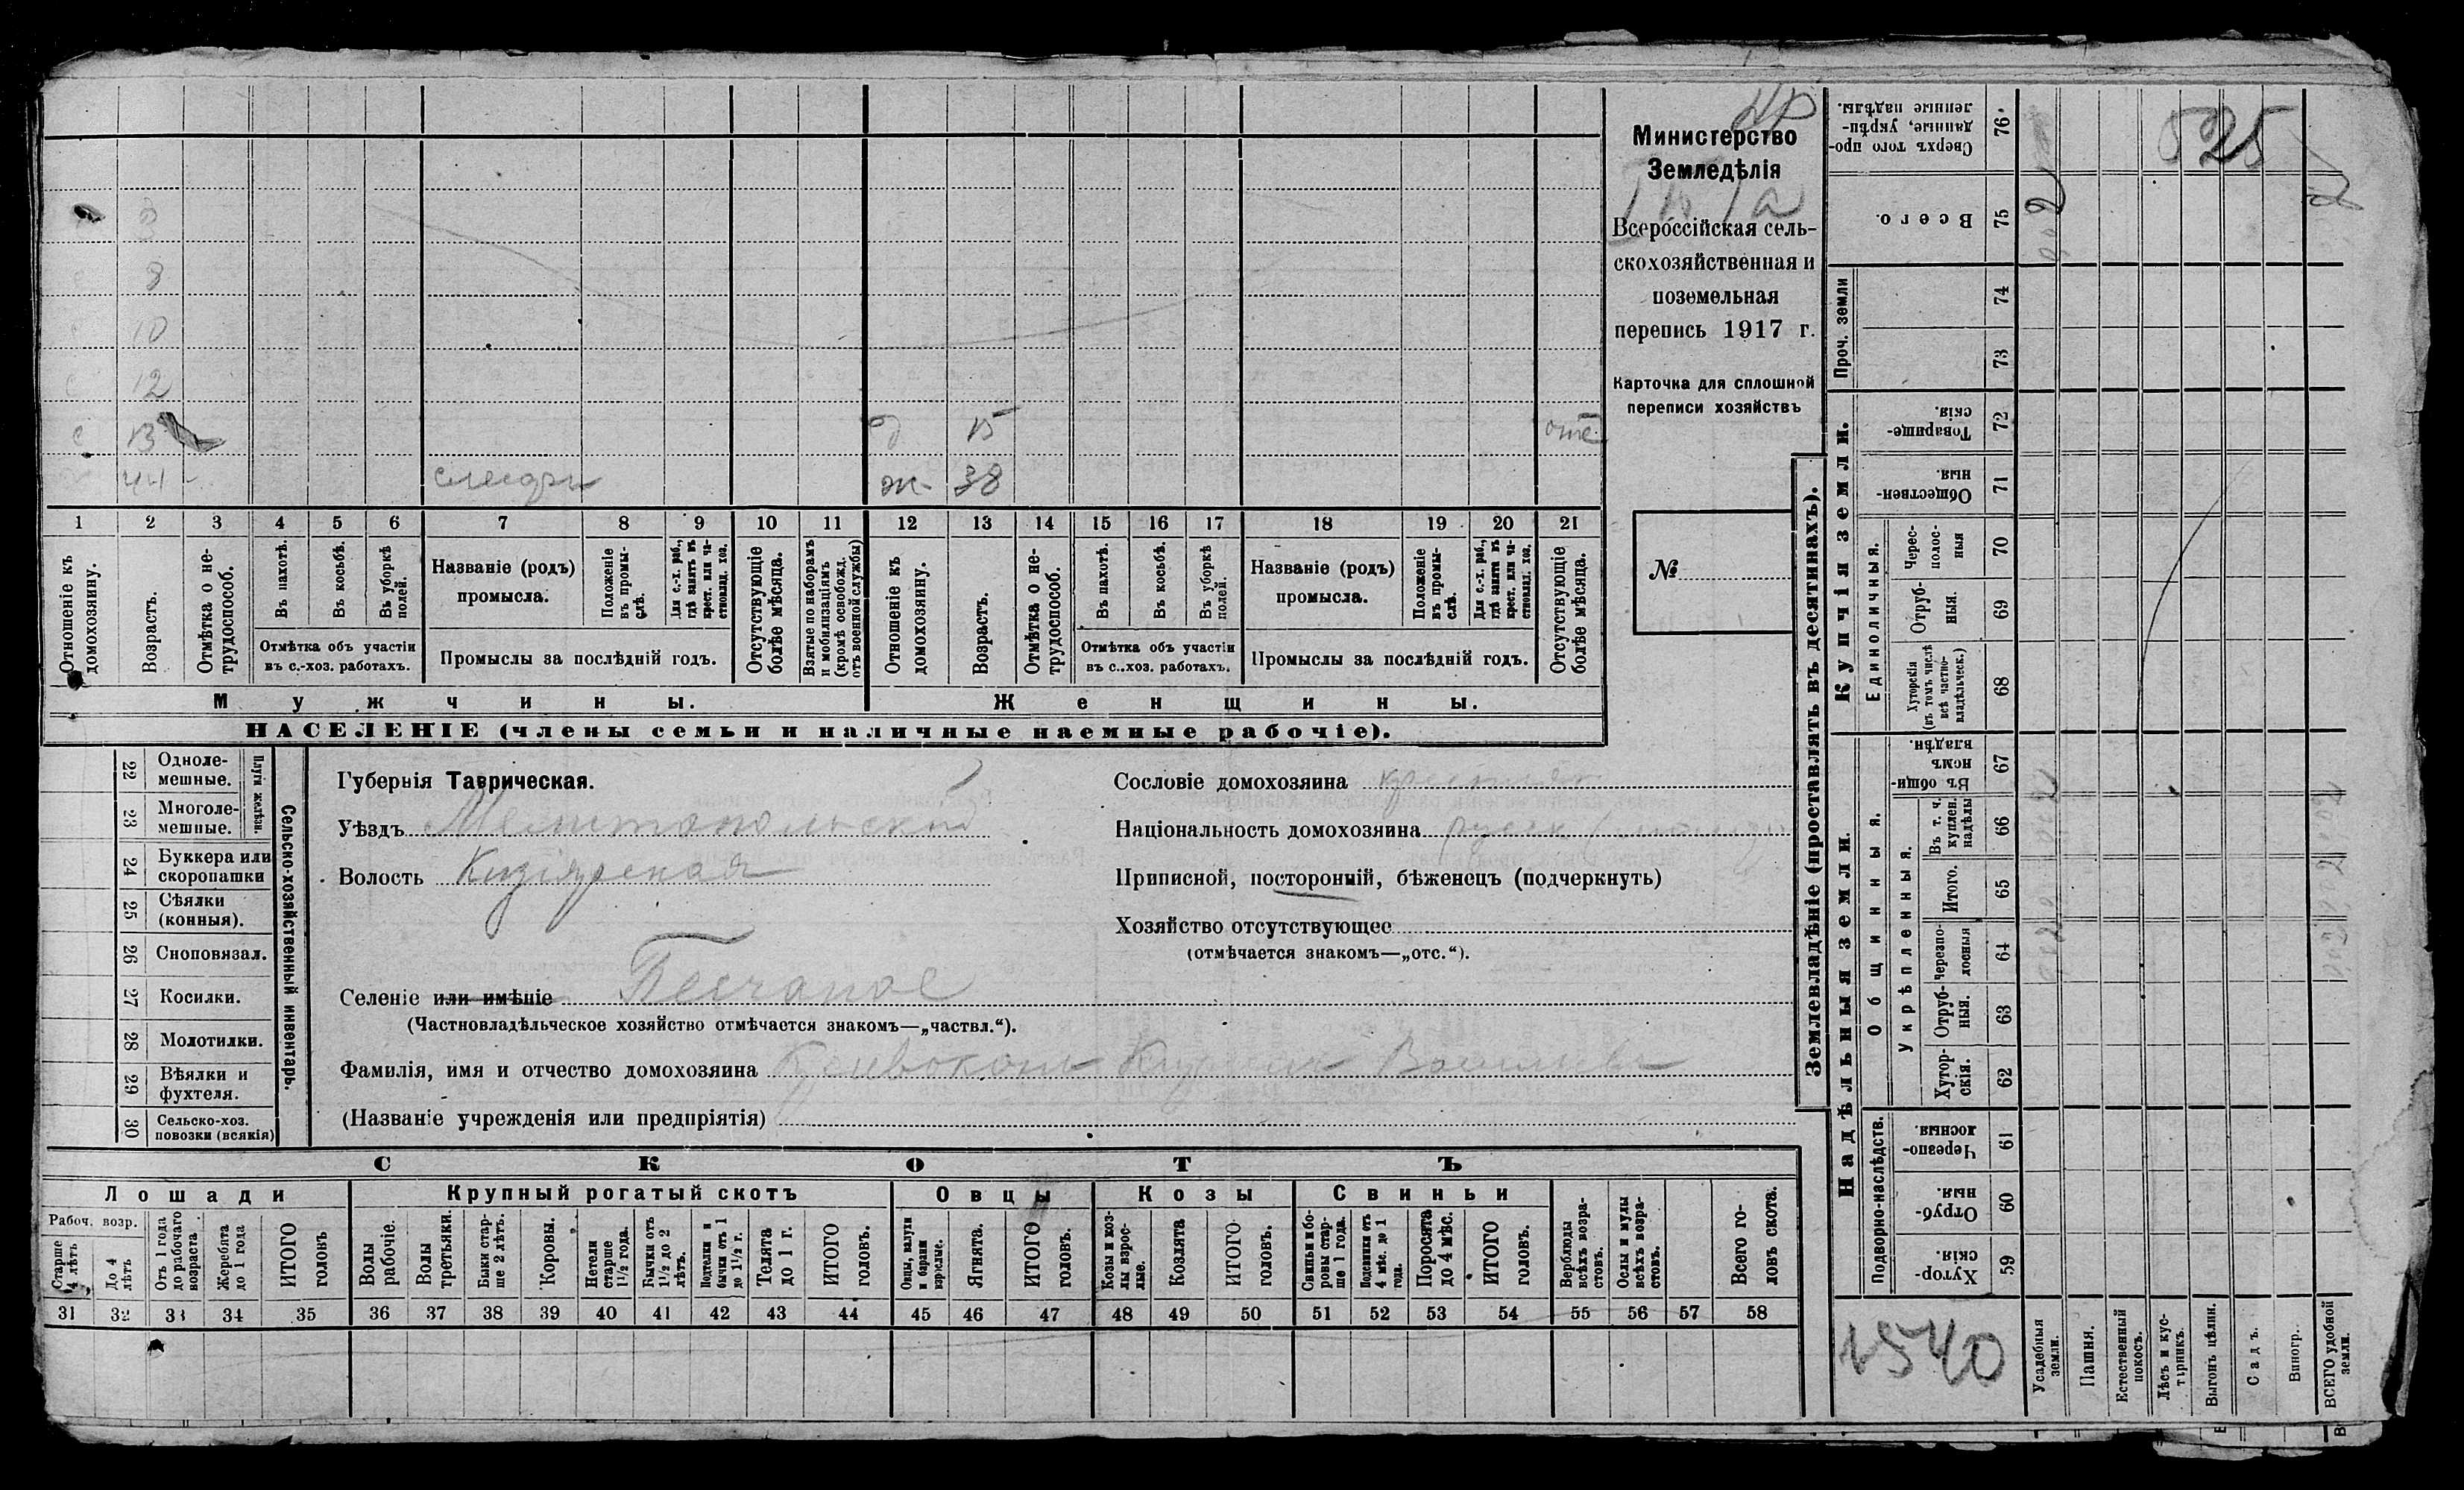 Министерство
Земледѣлія
Всероссійская сель-
скохозяйственная и
поземельная
перепись 1917 г.
Карточка для сплошной
переписи хозяйствъ
№
3
8
10
12
с 13 д 15 отс
44 слесарь ж 38
1 2 3 4 5 6 7 8 9 10 11 12 13 14 15 16 17 18 19 20 21
Отношеніе къ домохозяину.
Возрастъ.
Отмѣтка о не-трудоспособ.
Въ пахотѣ.
Въ косьбѣ.
Въ уборкѣ полей.
Отмѣтка объ участіи
въ с.-хоз. работахъ.
Названіе (родъ)
промысла.
Положеніе въ промы-слѣ.
Для с.-х. раб., гдѣ занятъ въ крест. или ча-стновлад. хоз.
Промыслы за послѣдній годъ.
Отсутствующіе болѣе мѣсяца.
Взятые по наборамъ и мобилизаціямъ (кромѣ освобожд. отъ военной службы)
Отношеніе къ домохозяину.
Возрастъ.
Отмѣтка о не-трудоспособ.
Въ пахотѣ.
Въ косьбѣ.
Въ уборкѣ полей.
Отмѣтка объ участіи
въ с..хоз. работахъ.
Названіе (родъ)
промысла.
Положеніе въ промы-слѣ.
Для с.-х. раб., гдѣ занята въ крест. или ча-стновлад. хоз.
Промыслы за послѣдній годъ.
Отсутствующіе болѣе мѣсяца.
Мужчины. Женщины.
НАСЕЛЕНІЕ (члены семьи и наличные наемные рабочіе).
22 Одноле-мешные.
23 Многоле-мешные.
Плуги желѣзн.
24 Буккера или скоропашки
25 Сѣялки (конныя).
26 Сноповязал.
27 Косилки.
28 Молотилки.
29 Вѣялки и фухтеля.
30 Сельско-хоз. повозки (всякія)
Сельско-хозяйственный инвентарь.
Губернія Таврическая.
Уѣздъ Мелитопольскій
Волость Кизіярская
Селеніе или имѣніе Песчаное
(Частновладѣльческое хозяйство отмѣчается знакомъ—„частвл.“).
Фамилія, имя и отчество домохозяина
(Названіе учрежденія или предпріятія)
Сословіе домохозяина крестьян
Національность домохозяина русск
Приписной, посторонній, бѣженецъ (подчеркнуть)
Хозяйство отсутствующее
(отмѣчается знакомъ—„отс.“).
СКОТЪ
Лошади Крупный рогатый скотъ Овцы Козы Свиньи
Рабоч. возр.
Старше 4 лѣтъ
До 4 лѣтъ
Отъ 1 года до рабочаго возраста
Жеребята до 1 года
ИТОГО головъ
Волы рабочіе.
Волы третьяки.
Быки стар-ше 2 лѣтъ.
Коровы.
Нетели старше 1½ года.
Бычки отъ 1½ до 2 лѣтъ.
Подтелки и бычки отъ 1 до 1½ г.
Телята до 1 г.
ИТОГО головъ.
Овцы, валухи и бараны взрослые.
Ягнята.
ИТОГО головъ.
Козы и коз-лы взрос-лые.
Козлята
ИТОГО головъ.
Свиньи и бо-ровы стар-ше 1 года.
Подсвинки отъ 4 мѣс. до 1 года.
Поросята до 4 мѣс.
ИТОГО головъ.
Верблюды всѣхъ возра-стовъ.
Ослы и мулы всѣхъ возра-стовъ.
Всего го-ловъ скота.
31 32 33 34 35 36 37 38 39 40 41 42 43 44 45 46 47 48 49 50 51 52 53 54 55 56 57 58
Землевладѣніе (проставлять въ десятинахъ).
Сверхъ того про-данные, укрѣп-ленные надѣлы. 76
Всего. 75
Проч. земли 74 73
Купчія земли.
Товарище-скія. 72
Обществен-ныя 71
Единоличныя.
Черес-полос-ныя 70
Отруб-ныя. 69
Хуторскія (въ томъ числѣ всѣ частно-владѣльческ.) 68
Надѣльныя земли.
Общинныя.
Въ общин-номъ владѣн. 67
Укрѣпленныя.
Въ т. ч. куплен. надѣлы 66
Итого. 65
Черезпо-лосныя 64
Отруб-ныя. 63
Хутор-скія. 62
Подворно-наслѣдств.
Черезпо-лосныя. 61
Отруб-ныя. 60
Хутор-скія. 59
525
1540
Усадебныя земли.
Пашня.
Естественный покосъ.
Лѣсъ и кус-тарникъ.
Выгонъ цѣлин.
Садъ.
Виногр.
ВСЕГО удобной земли.